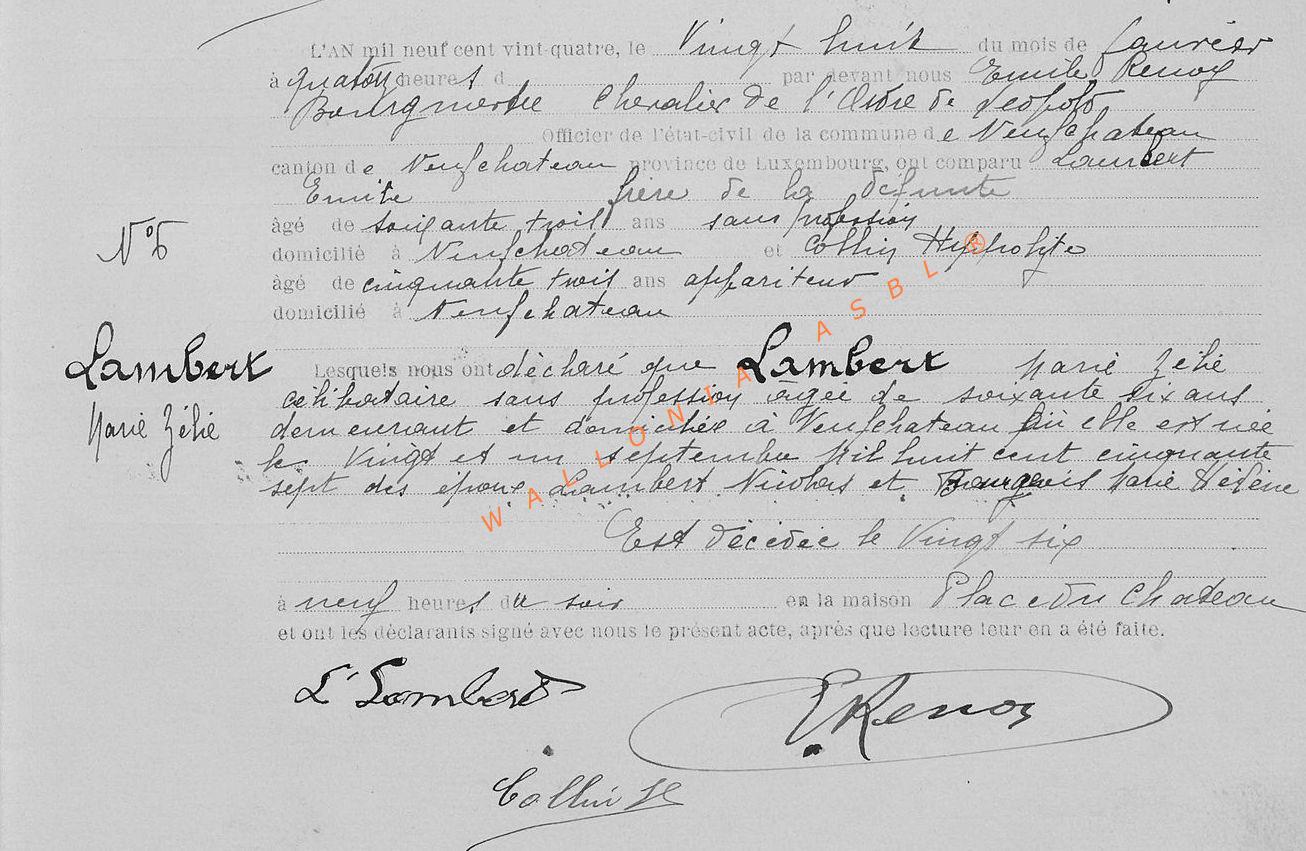 L'AN mil neuf cent vint-quatre, le Vingt huit du mois de Janvier
à quatorze heures d par devant nous Emile Renoy
Bourgmestre Chevalier de l'Ordre de Leopold
Officier de l'état-civil de la commune de Neufchateau
canton de Neufchateau province de Luxembourg, ont comparu Lambert
Emile frère de la défunte
âgé de soixante trois ans sans profession
N° 6
domicilié à Neufchateau et Collin Hyppolyte
âgé de cinquante trois ans appariteur
domicilié à Neufchateau
Lambert
Marie Zélie
Lesquels nous ont déclaré que Lambert Marie Zélie
célibataire sans profession âgée de soixante six ans
demeurant et domiciliée à Neufchateau où elle est née
le Vingt et un septembre Mil huit cent cinquante
sept des époux Lambert Nicolas et Bourgeois Marie Hélène
Est décédée le Vingt six
à neuf heures du soir en la maison Place du Chateau
et ont les déclarants signé avec nous le présent acte, après que lecture leur en a été faite.
Lambert
E Renoy
Collin H
WALLONIA ASBL ®